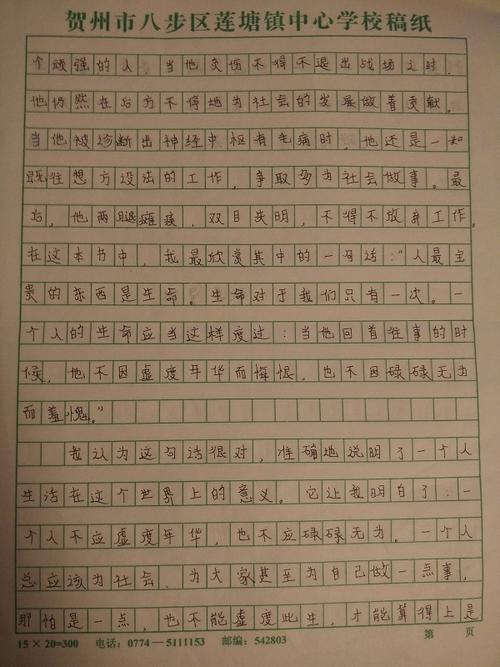 贺州市八步区莲塘镇中心学校稿纸
个顽强的人，当他负伤不得不退出战场之时，
他仍然在后方不停地为社会的发展做着贡献。
当他被诊断出神经中枢有毛病时，他还是一如
既往想方设法的工作，争取多为社会做事。最
后，他两腿瘫痪，双目失明，不得不放弃工作。
在这本书中，我最欣赏其中的一句话：“人最主
贵的东西是生命。生命对于我们只有一次。一
个人的生命应当这样度过：当他回首往事的时
候，他不因虚度年华而悔恨，也不因碌碌无为
而羞愧。”
我认为这句话很对，准确地说明了一个人
生活在这个世界上的意义。它让我明白了：一
个人不应虚度年华，也不应碌碌无为。一个人
总应该为社会、为大家甚至为自己做一点事，
那怕是一点，也不能虚度此生，才能算得上是
15×20=300 电话：0774—5111153 邮编：542803 第 页